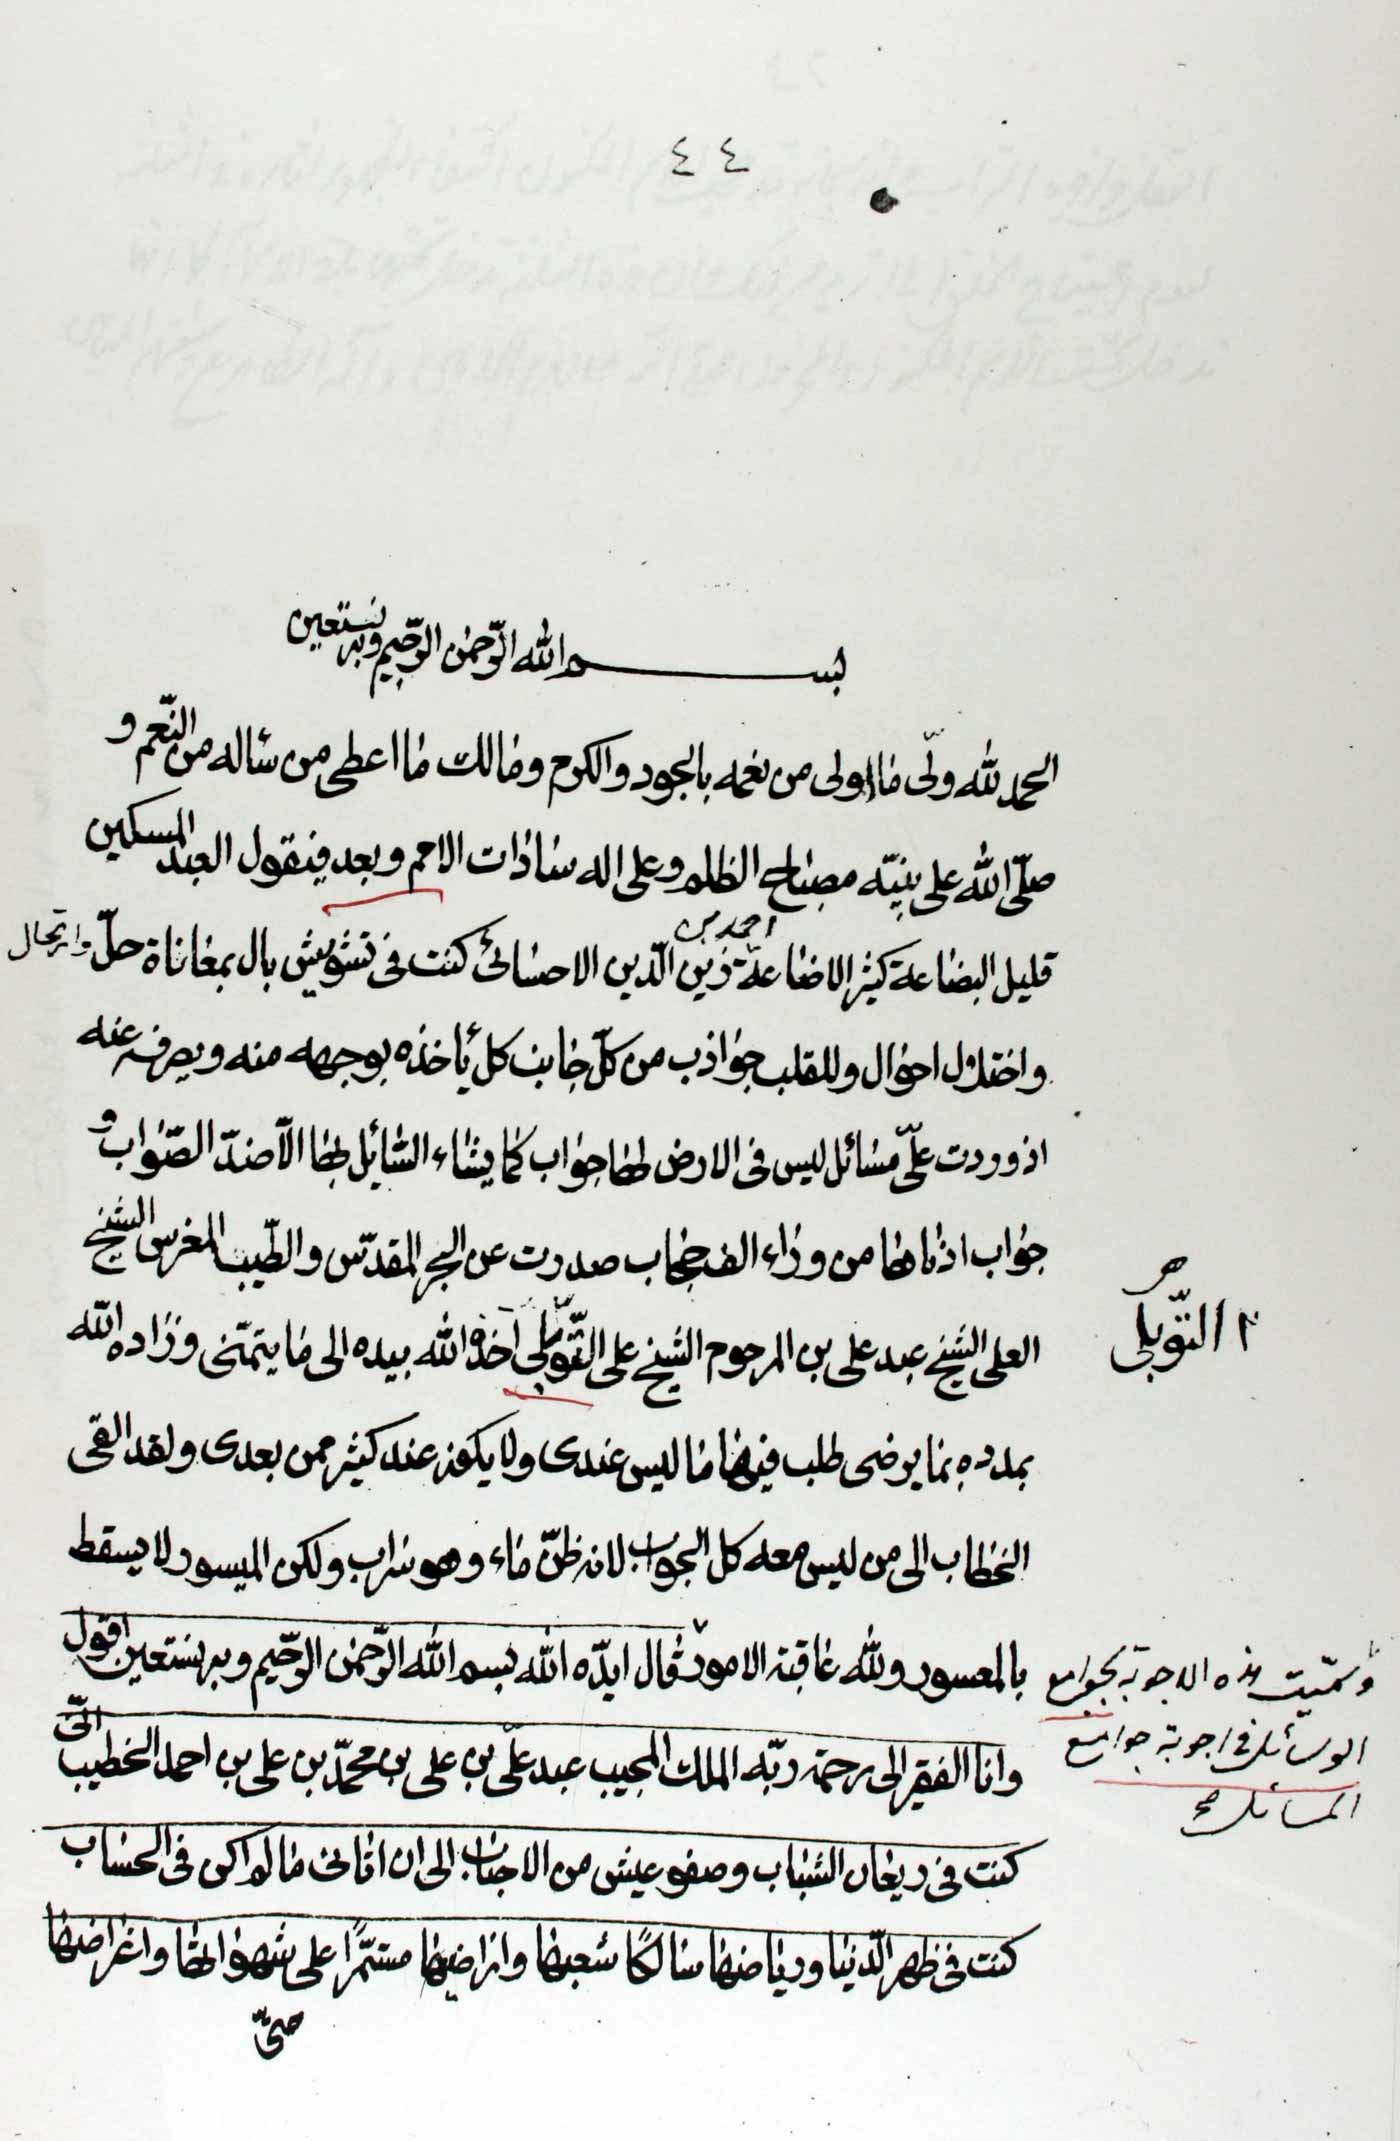 ٤٤
بسم الله الرّحمن الرّحيم وبه نستعين
الحمد لله ولّى ما اولى من نعمه بالجود والكرم ومالك ما اعطى من سأله من النّعم و
صلّى الله على نبيّه مصباح الظلم وعلى اله سادات الامم وبعد فيقول العبد المسكين
قليل البضاعة كثير الاضاعة احمد بن زين الدّين الاحسائى كنت فى تشويش بال بمعاناة حلّ وارتحال
واختلال احوال وللقلب جواذب من كلّ جانب كل يأخذه بوجهه منه ويصرفه عنه
اذ وردت علىّ مسائل ليس فى الارض لها جواب كما يشاء السّائل لها الّا ضدّ الصّواب و
جواب اذا ماها من وراء الف حجاب صدرت عن البحر المقدّس والطّيب المغرس الشيخ
العلى الشيخ عبد على بن المرحوم الشيخ على التّوبلى اخذ الله بيده الى ما يتمنّى وزاده الله
التّوبلى
بمدده بما يرضى طلب فيها ما ليس عندى ولا يكون عند كثير ممن بعدى ولقد القى
الخطاب الى من ليس معه كل الجواب لانه ظنّ ماء وهو سراب ولكن الميسور لا يسقط
بالمعسور ولله عاقبة الامور قال ايدّه الله بسم الله الرّحمن الرّحيم وبه نستعين اقول
وسمّيت هذه الاجوبة بجوامع
الوسائل فى اجوبة جوامع
المسائل صح
وانا الفقير الى رحمة ربّه الملك المجيب عبد علىّ بن على بن محمّد بن على بن احمد الخطيب انّى
كنت فى ريعان الشباب وصفو عيش من الاجناب الى ان اتانى ما لم اكن فى الحساب
كنت فى ظهر الدّنيا ورياضها سالكًا شعبها واراضيها مستمرًّا على شهواتها واغراضها
حتّى